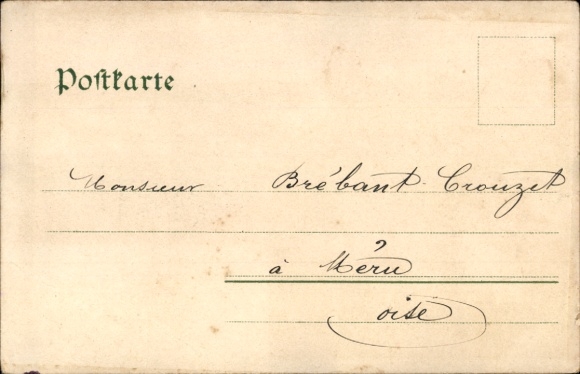 Postkarte
Monsieur Brébant-Crouzet
à Méru
oise